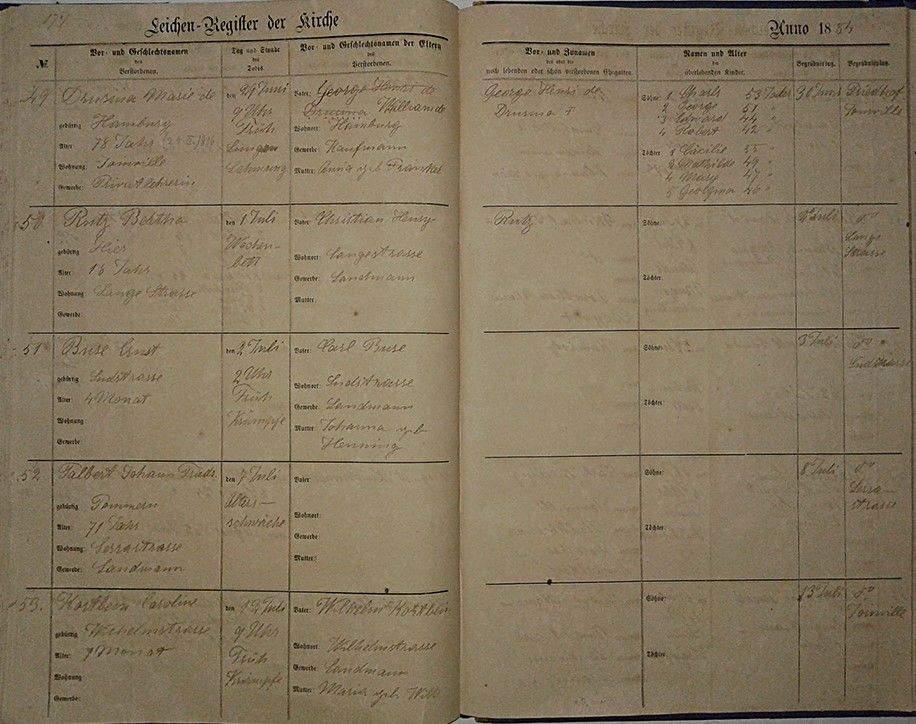 177.
Leichen-Register der Kirche
Anno 1884
№
Vor- und Geschlechtsnamen
des
Verstorbenen.
Tag und Stunde
des
Todes.
Vor- und Geschlechtsnamen der Eltern
des
Verstorbenen.
Vor- und Zunamen
des oder der
noch lebenden oder schon verstorbenen Ehegatten.
Namen und Alter
der
überlebenden Kinder.
Begräbnißtag.
Begräbnißplatz.
49
Drusina Marie de
gebürtig Hamburg
Alter: 78 Jahr
Wohnung: Joinville
Gewerbe: Privatlehrerin
den 29 Juni
9 Uhr
Früh
Lungen
Lähmung
Vater: George Henri de
Drusina William de
Wohnort: Hamburg
Gewerbe: Kaufmann
Mutter: Anna geb
George Henri de
Drusina †
Söhne: 1 Charls 53 Jahr
2 George 51 "
3 Edward 44 "
4 Robert 42 "
Töchter 1 Cäcilie 55 "
2 Mathilde 49 "
4 Mary 47 "
5 Georgina 46 "
30 Juni
Friedhof
Joinville
50
Rutz Bertha
gebürtig Hier
Alter: 18 Jahr
Wohnung: Lange Strasse
Gewerbe:
den 1 Juli
Wochen-
bett
Vater: Christian Henry
Wohnort: Langestrasse
Gewerbe: Landmann
Mutter:
Rutz
Söhne:
Töchter:
2 Juli
do
Lange
Strasse
51
Buse Ernst
gebürtig Südstrasse
Alter: 4 Monat
Wohnung:
Gewerbe:
den 2 Juli
2 Uhr
Früh
Krämpfe
Vater: Carl Buse
Wohnort: Südstrasse
Gewerbe: Landmann
Mutter: Johanna geb
Henning
Söhne:
Töchter:
3 Juli
do "
Südstrasse
52
Talbert Johann Friedr.
gebürtig Pommern
Alter: 71 Jahr
Wohnung: Serrastrasse
Gewerbe: Landmann
den 7 Juli
Alters-
schwäche
Vater:
Wohnort:
Gewerbe:
Mutter:
Söhne:
Töchter:
8 Juli
do
Serra-
strasse
53.
Caroline
gebürtig Wilhelmstrasse
Alter: 7 Monat
Wohnung
Gewerbe:
den 12 Juli
9 Uhr
Früh
Krämpfe
Vater: Wilhelm
Wohnort: Wilhelmstrasse
Gewerbe: Landmann
Mutter: Marie geb
Söhne:
Töchter:
13 Juli
do
Joinville